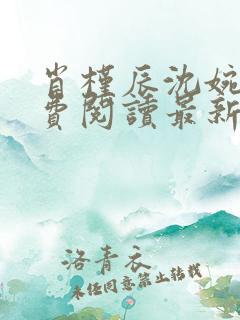 肖槿辰沈婉
费阅读最新
洛青衣
未经同意禁止转载